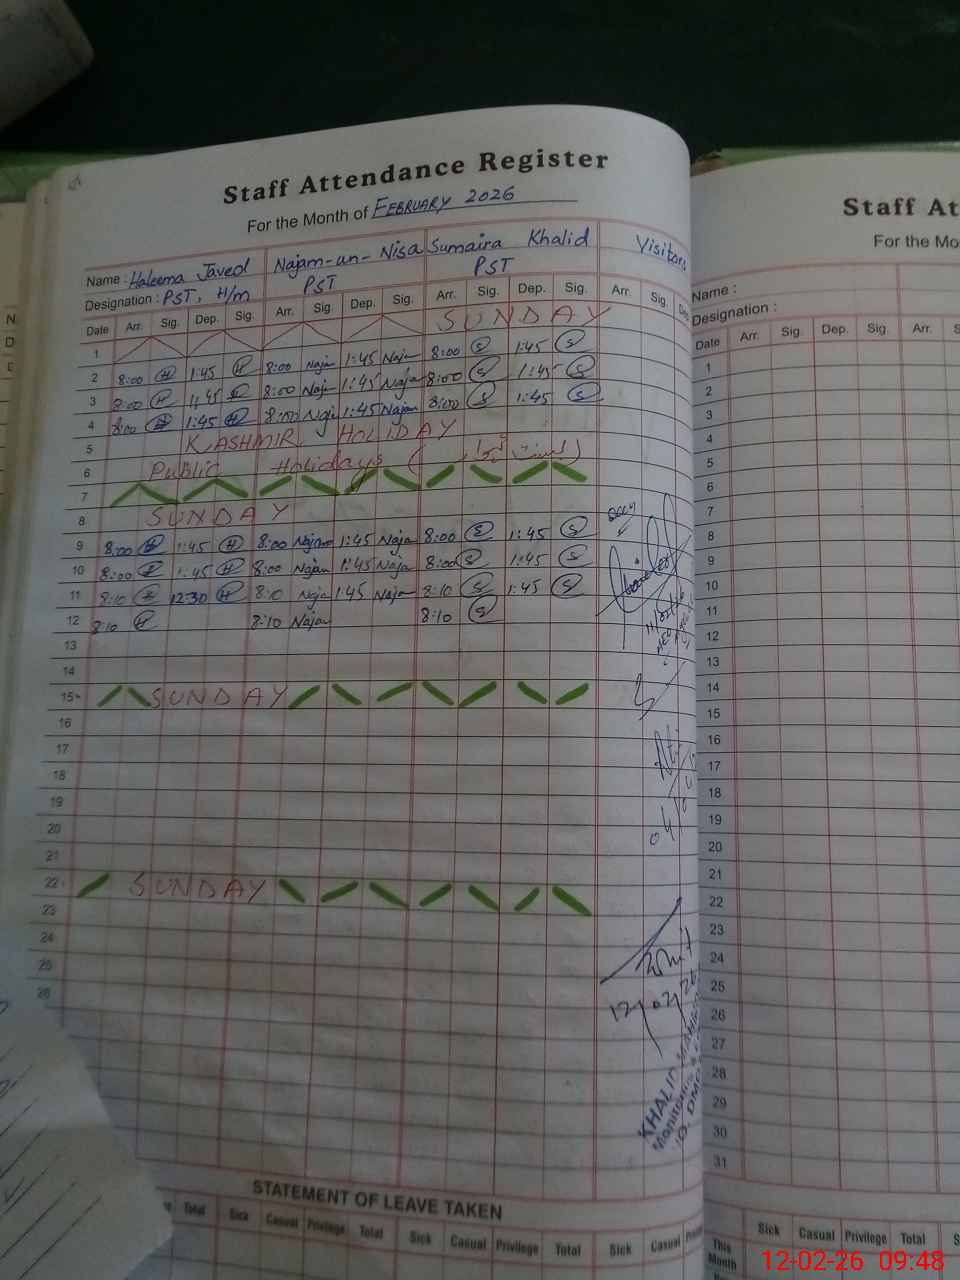 Staff Attendance Register
For the Month of FEBRUARY 2026
Name : Haleema Javed Najam-un-Nisa Sumaira Khalid Visitors
Designation : PST, H/m PST PST
Date Arr. Sig. Dep. Sig. Arr. Sig. Dep. Sig. Arr. Sig. Dep. Sig. Arr. Sig.
1 SUNDAY
2 8:00 H 1:45 H 8:00 Naja 1:45 Naja 8:00 S 1:45 S
3 8:00 H 1:45 8:00 Naja 1:45 Naja 8:00 S 1:45 S
4 8:00 H 1:45 H 8:00 Naja 1:45 Najam 8:00 S 1:45 S
5 KASHMIR HOLIDAY
6 Public Holidays (
7
8 SUNDAY
9 8:00 H 1:45 H 8:00 Najam 1:45 Najam 8:00 S 1:45 S
10 8:00 H 1:45 H 8:00 Najam 1:45 Najam 8:00 S 1:45 S
11 8:10 H 12:30 H 8:10 Naja 1:45 Najam 8:10 S 1:45 S
12 8:10 H 8:10 Najam 8:10 S
13
14
15 SUNDAY
16
17
18
19
20
21
22 SUNDAY
23
24
25
26
12/02/26
KHALID
STATEMENT OF LEAVE TAKEN
Total Sick Casual Privilege Total Sick Casual Privilege Total Sick Casual
Staff At
For the Mo
Name :
Designation :
Date Arr. Sig. Dep. Sig. Arr.
1
2
3
4
5
6
7
8
9
10
11
12
13
14
15
16
17
18
19
20
21
22
23
24
25
26
27
28
29
30
31
This Month Sick Casual Privilege Total
12-02-26 09:48